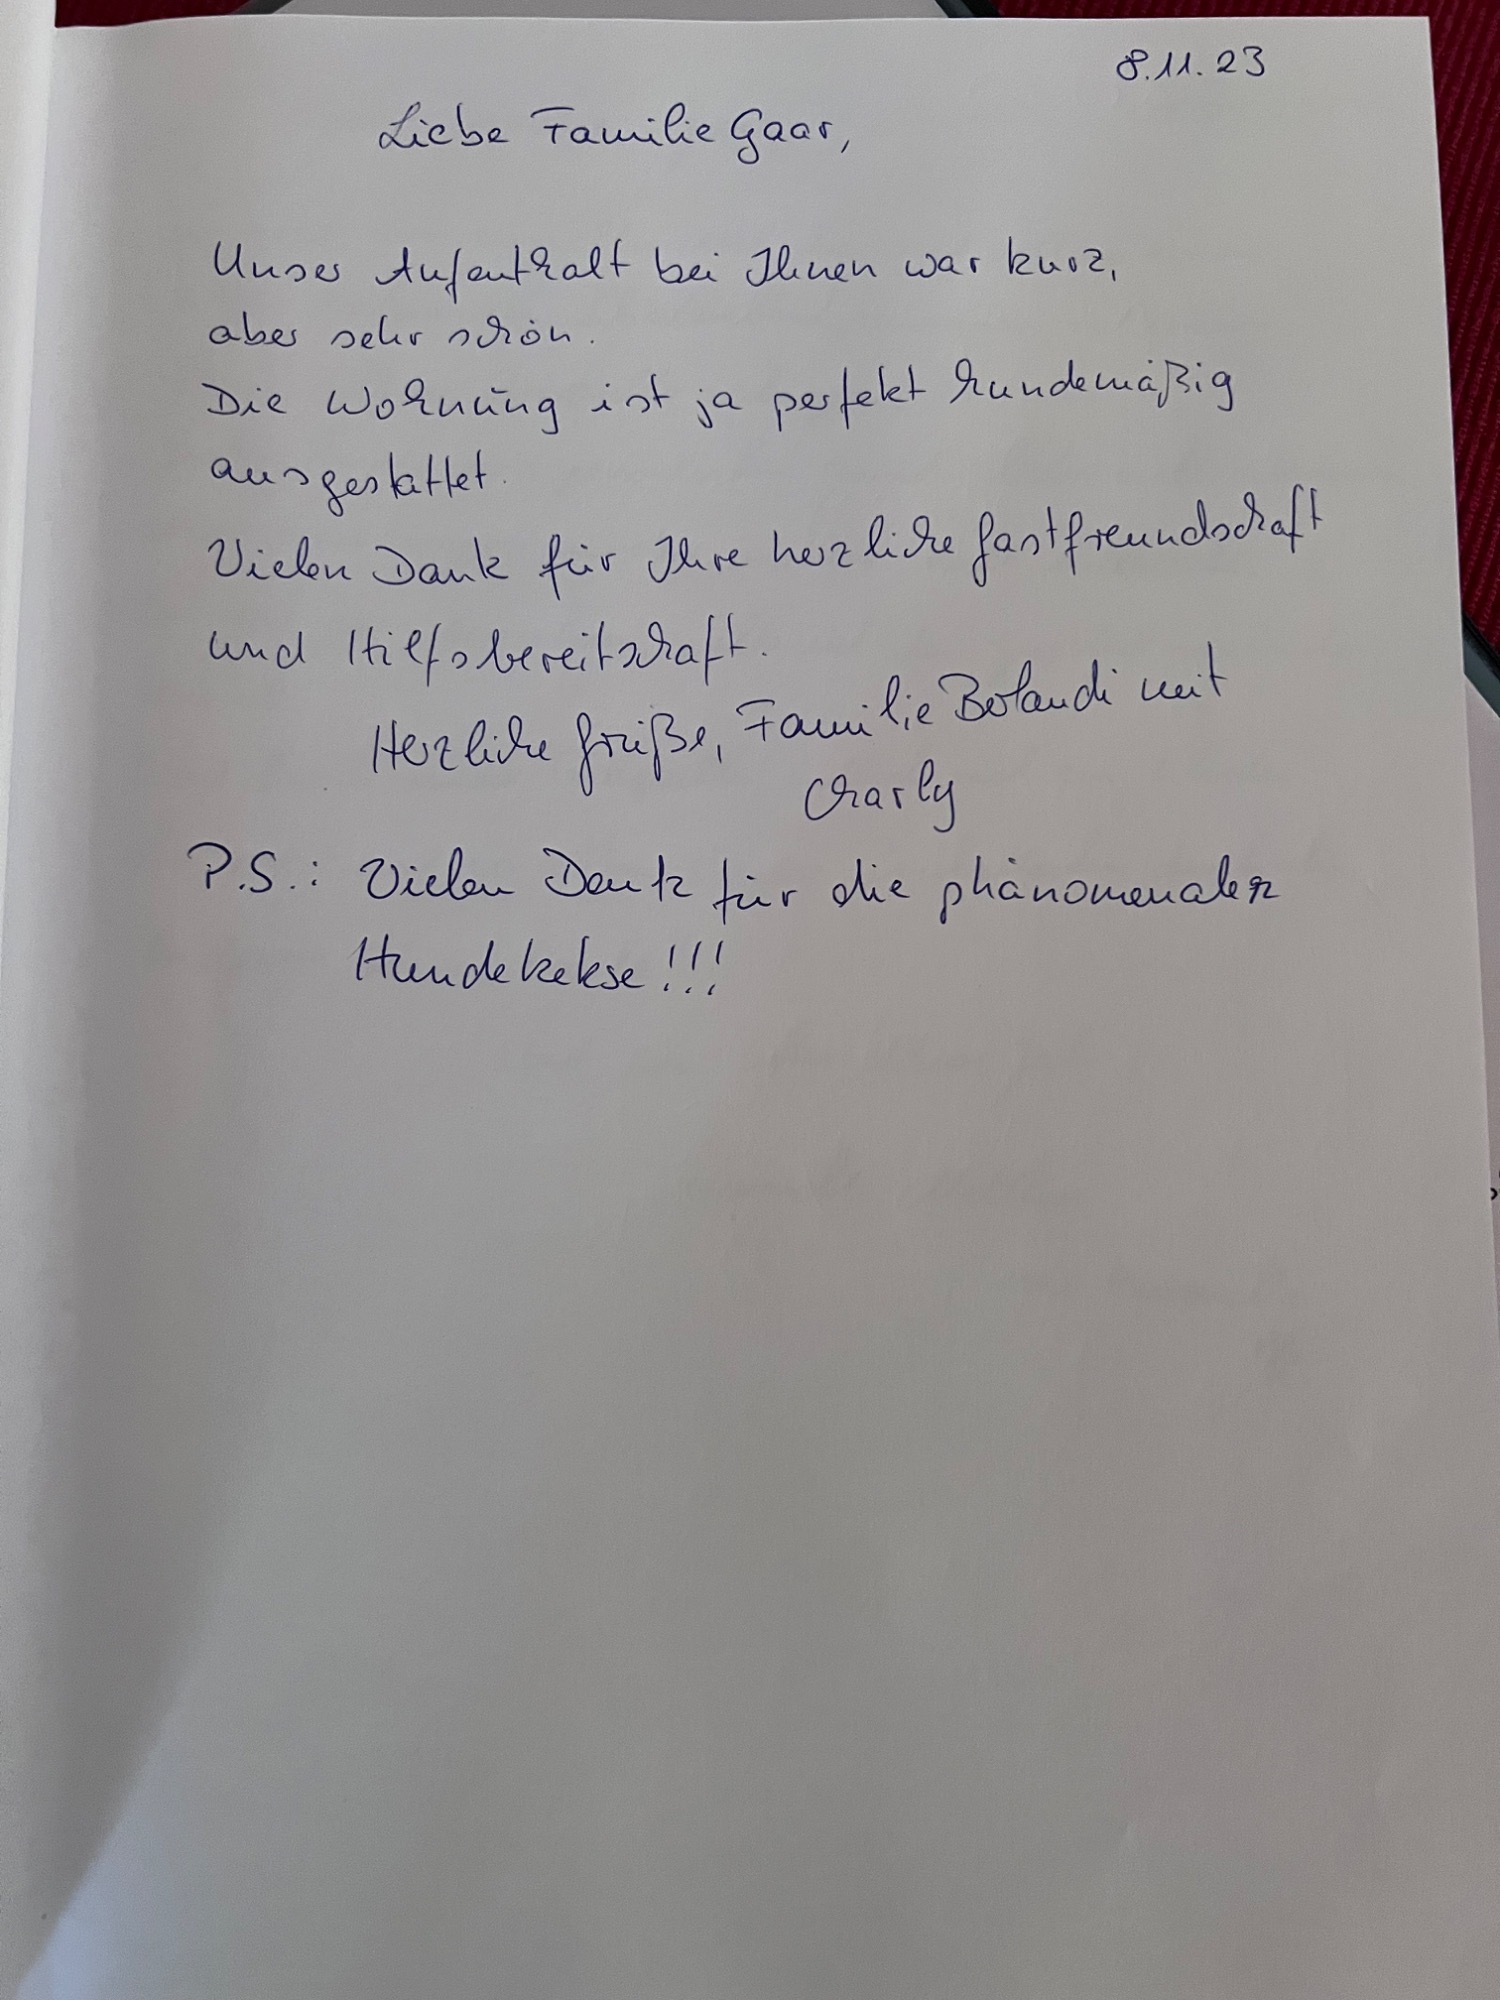 8.11.23
Liebe Familie Gaar,
Unser Aufenthalt bei Ihnen war kurz,
aber sehr schön.
Die Wohnung ist ja perfekt hundemäßig
ausgestattet.
Vielen Dank für Ihre herzliche Gastfreundschaft
und Hilfsbereitschaft.
Herzliche Grüße, Familie Bolandi mit
Charly
P.S.: Vielen Dank für die phänomenalen
Hundekekse!!!